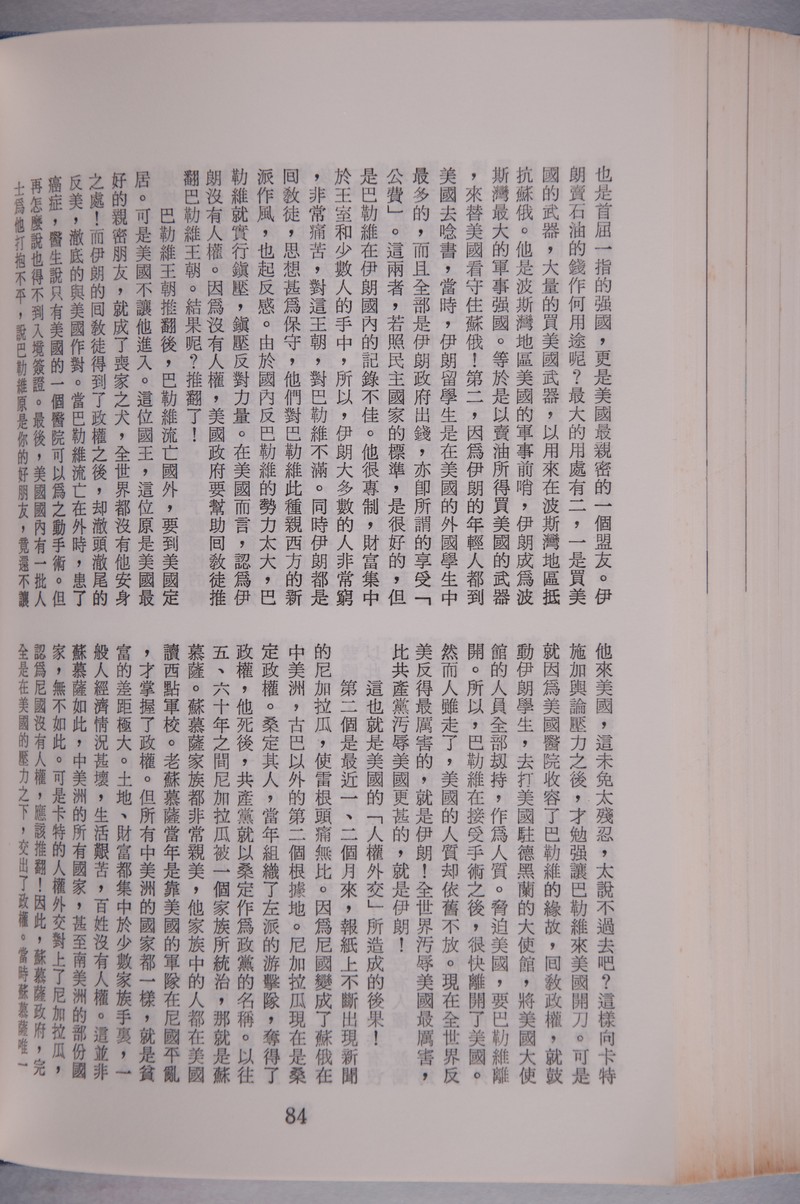 也是首屈一指的强國，更是美國最親密的一個盟友。伊
朗賣石油的錢作何用途呢？最大的用處有二，一是買美
國的武器，大量的買美國武器，以用來在波斯灣地區抵
抗蘇俄。他是波斯灣地區美國的軍事前哨，伊朗成爲波
斯灣最大的軍事强國。等於是以賣油所得買美國的武器
，來替美國看守住蘇俄！第二，因爲伊朗的年輕人都到
美國去唸書，當時，伊朗留學生是在美國的外國學生中
最多的，而且全部是伊朗政府出錢，亦即所謂的享受「
公費」。這兩者，若照民主國家的標準，是很好的，但
是巴勒維在伊朗國內的記錄不佳。他很專制，財富集中
於王室和少數人的手中，所以，伊朗大多數的人非常窮
，非常痛苦，對這王朝，對巴勒維不滿。同時伊朗都是
回教徒，思想甚爲保守，他們對巴勒維此種親西方的新
派作風，也起反感。由於國內反巴勒維的勢力太大，巴
勒維就實行鎭壓，鎭壓反對力量。在美國而言，認爲伊
朗沒有人權。因爲沒有人權，美國政府要幫助回教徒推
翻巴勒維王朝。結果呢？推翻了！
巴勒維王朝推翻後，巴勒維流亡國外，要到美國定
居。可是美國不讓他進入。這位國王，這位原是美國最
好的親密朋友，就成了喪家之犬，全世界都沒有他安身
之處！而伊朗的回教徒得到了政權之後，却澈頭澈尾的
反美，澈底的與美國作對。當巴勒維流亡在外時，患了
癌症，醫生說只有美國的一個醫院可以爲之動手術。但
再怎麼說也得不到入境簽證。最後，美國國內有一批人
士爲他打抱不平，說巴勒維原是你的好朋友，竟還不讓
他來美國，這未免太殘忍，太說不過去吧？這樣向卡特
施加輿論壓力之後，才勉强讓巴勒維來美國開刀。可是
就因爲美國醫院收容了巴勒維的緣故，回教政權，就鼓
動伊朗學生，去打美國駐德黑蘭的大使館，將美國大使
館的人員全部刼持，作爲人質。脅迫美國，要巴勒維離
開。所以，巴勒維在接受手術之後，很快離開了美國。
然而人雖走了，美國的人質却依舊不放。現在全世界反
美反得最厲害的，就是伊朗！全世界汚辱美國最厲害，
比共產黨汚辱美國更甚的，就是伊朗！
這也就是美國的「人權外交」所造成的後果！
第二個是最近一、二個月來，報紙上不斷出現新聞
的尼加拉瓜，使雷根頭痛無比。因爲尼國變成了蘇俄在
中美洲，古巴以外的第二個根據地。尼加拉瓜現在是桑
定政權。桑定其人，當年組織了左派的游擊隊，奪得了
政權，他死後，共產黨就以桑定作爲政黨的名稱。以往
五、六十年之間尼加拉瓜被一個家族所統治，那就是蘇
慕薩。蘇慕薩家族都非常親美，他家族中的人都在美國
讀西點軍校。老蘇慕薩當年是靠美國的軍隊在尼國平亂
，才掌握了政權。但所有中美洲的國家都一樣，就是貧
富的差距極大。土地、財富都集中於少數家族手裏，一
般人經濟情況甚壞，生活艱苦，百姓沒有人權。這並非
蘇慕薩如此，中美洲的所有國家，甚至南美洲的部份國
家，無不如此。可是卡特的人權外交對上了尼加拉瓜，
認爲尼國沒有人權，應該推翻！因此，蘇慕薩政府，完
全是在美國的壓力之下，交出了政權。當時蘇慕薩唯一
84